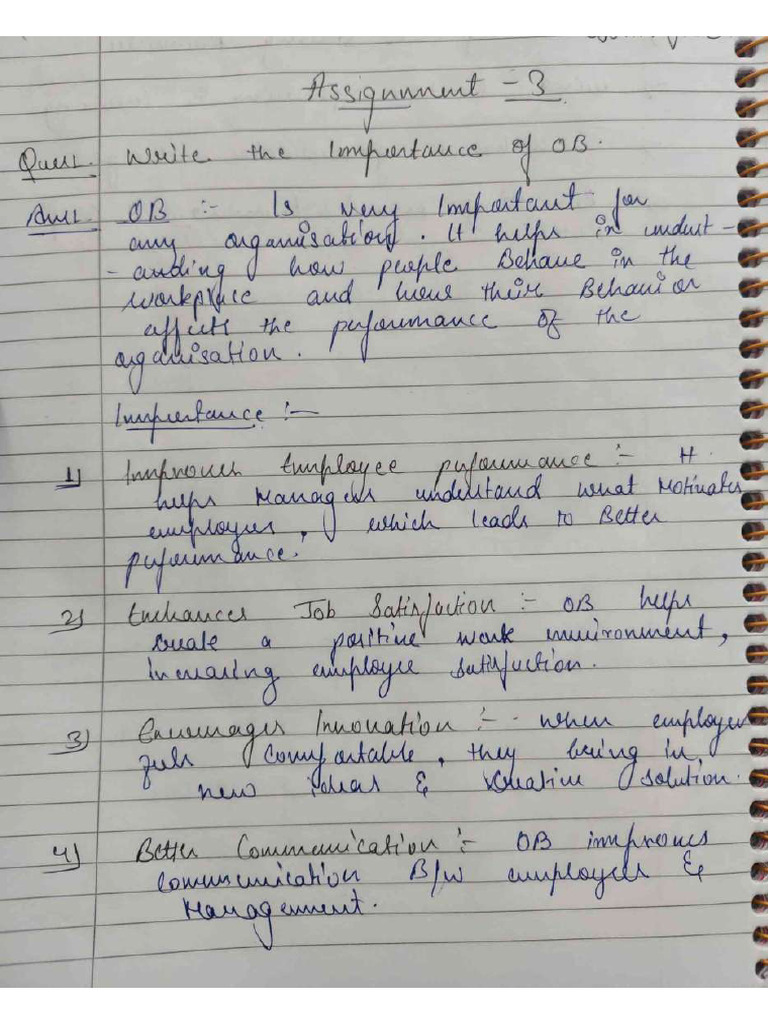 Assignment - 3
Ques1. Write the Importance of OB.
Ans1. OB :- Is very Important for
any organisation. It helps in underst-
-anding how people Behave in the
workplace and how their Behavior
affects the performance of the
organisation.
Importance :-
1) Improves Employee performance :- It
helps Managers understand what Motivates
employees, which leads to Better
performance.
2) Enhances Job Satisfaction :- OB helps
create a positive work environment,
increasing employee satisfaction.
3) Encourages Innovation :- when employees
feels Comfortable, they being in
new ideas & creative solution.
4) Better Communication :- OB improves
communication B/w employees &
Management.